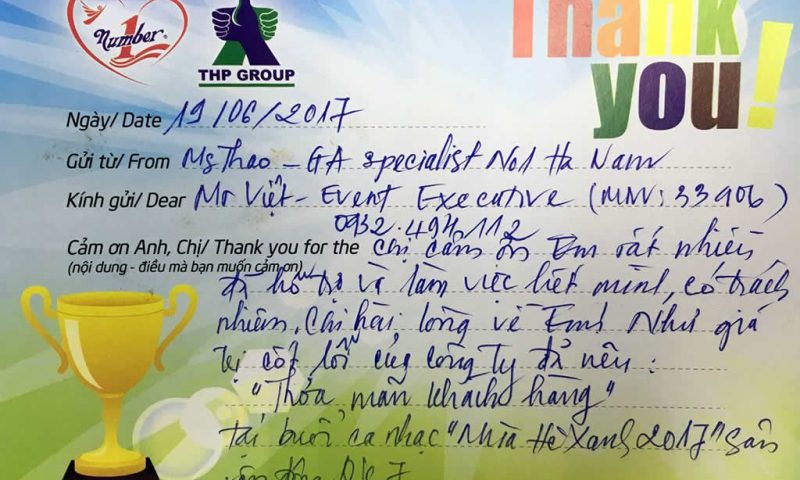 Number 1
THP GROUP
Thank you!
Ngày/ Date 19/06/2017
Gửi từ/ From Ms Thao - GA specialist No1 Ha Nam
Kính gửi/ Dear Mr Việt - Event Executive (MNV: 33906)
0932.494.112
Cảm ơn Anh, Chị/ Thank you for the Chị cảm ơn Em rất nhiều
(nội dung - điều mà bạn muốn cảm ơn)
đã hỗ trợ và làm việc hết mình, có trách
nhiệm. Chị hài lòng về Em! Như giá
trị cốt lõi của công ty đã nêu:
"Thỏa mãn khách hàng"
tại buổi ca nhạc "Mùa Hè Xanh 2017" Sân
vận động